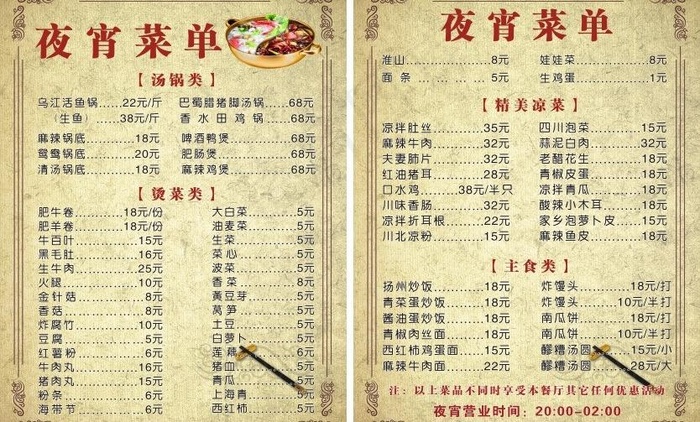 夜宵菜单
【汤锅类】
乌江活鱼锅......22元/斤 巴蜀腊猪脚汤锅......68元
（生鱼）......38元/斤 香水田鸡锅......68元
麻辣锅底......18元 啤酒鸭煲......68元
鸳鸯锅底......20元 肥肠煲......68元
清汤锅底......18元 麻辣鸡煲......68元
【烫菜类】
肥牛卷......18元/份 大白菜......5元
肥羊卷......18元/份 油麦菜......5元
牛百叶......15元 生菜......5元
黑毛肚......16元 菜心......5元
生牛肉......25元 波菜......5元
火腿......10元 香菜......8元
金针菇......8元 黄豆芽......5元
香菇......8元 莴笋......5元
炸腐竹......10元 土豆......5元
豆腐......5元 白萝卜......5元
红薯粉......6元 莲藕......6元
牛肉丸......16元 猪血......5元
猪肉丸......15元 青瓜......5元
粉条......6元 上海青......5元
海带节......6元 西红柿......5元
夜宵菜单
淮山......8元 娃娃菜......8元
面条......5元 生鸡蛋......1元
【精美凉菜】
凉拌肚丝......35元 四川泡菜......15元
麻辣牛肉......32元 蒜泥白肉......32元
夫妻肺片......32元 老醋花生......18元
红油猪耳......28元 青椒皮蛋......18元
口水鸡......38元/半只 凉拌青瓜......18元
川味香肠......32元 酸辣小木耳......18元
凉拌折耳根......22元 家乡泡萝卜皮......15元
川北凉粉......15元 麻辣鱼皮......18元
【主食类】
扬州炒饭......18元 炸馒头......18元/打
青菜蛋炒饭......18元 炸馒头......10元/半打
酱油蛋炒饭......18元 南瓜饼......18元/打
青椒肉丝面......18元 南瓜饼......10元/半打
西红柿鸡蛋面......15元 醪糟汤圆......15元/小
麻辣牛肉面......22元 醪糟汤圆......28元/大
注：以上菜品不同时享受本餐厅其它任何优惠活动
夜宵营业时间：20:00-02:00